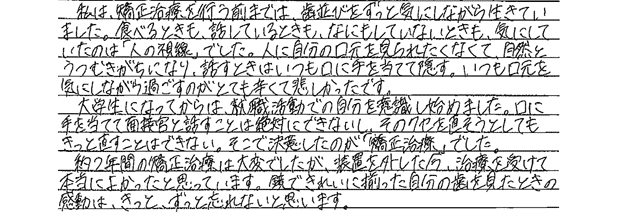 私は、矯正治療を行う前までは、歯並びをずっと気にしながら生きてい
ました。食べるときも、話しているときも、なにもしていないときも、気にして
いたのは「人の視線」でした。人に自分の口元を見られたくなくて、自然と
うつむきがちになり、話すときはいつも口に手を当てて隠す。いつも口元を
気にしながら過ごすのがとても辛くて悲しかったです。
大学生になってからは、就職活動での自分を意識し始めました。口に
手を当てて面接官と話すことは絶対にできないし、そのクセを直そうとしても
きっと直すことはできない。そこで決意したのが「矯正治療」でした。
約2年間の矯正治療は大変でしたが、装置を外した今、治療を受けて
本当によかったと思っています。鏡できれいに揃った自分の歯を見たときの
感動は、きっと、ずっと忘れないと思います。